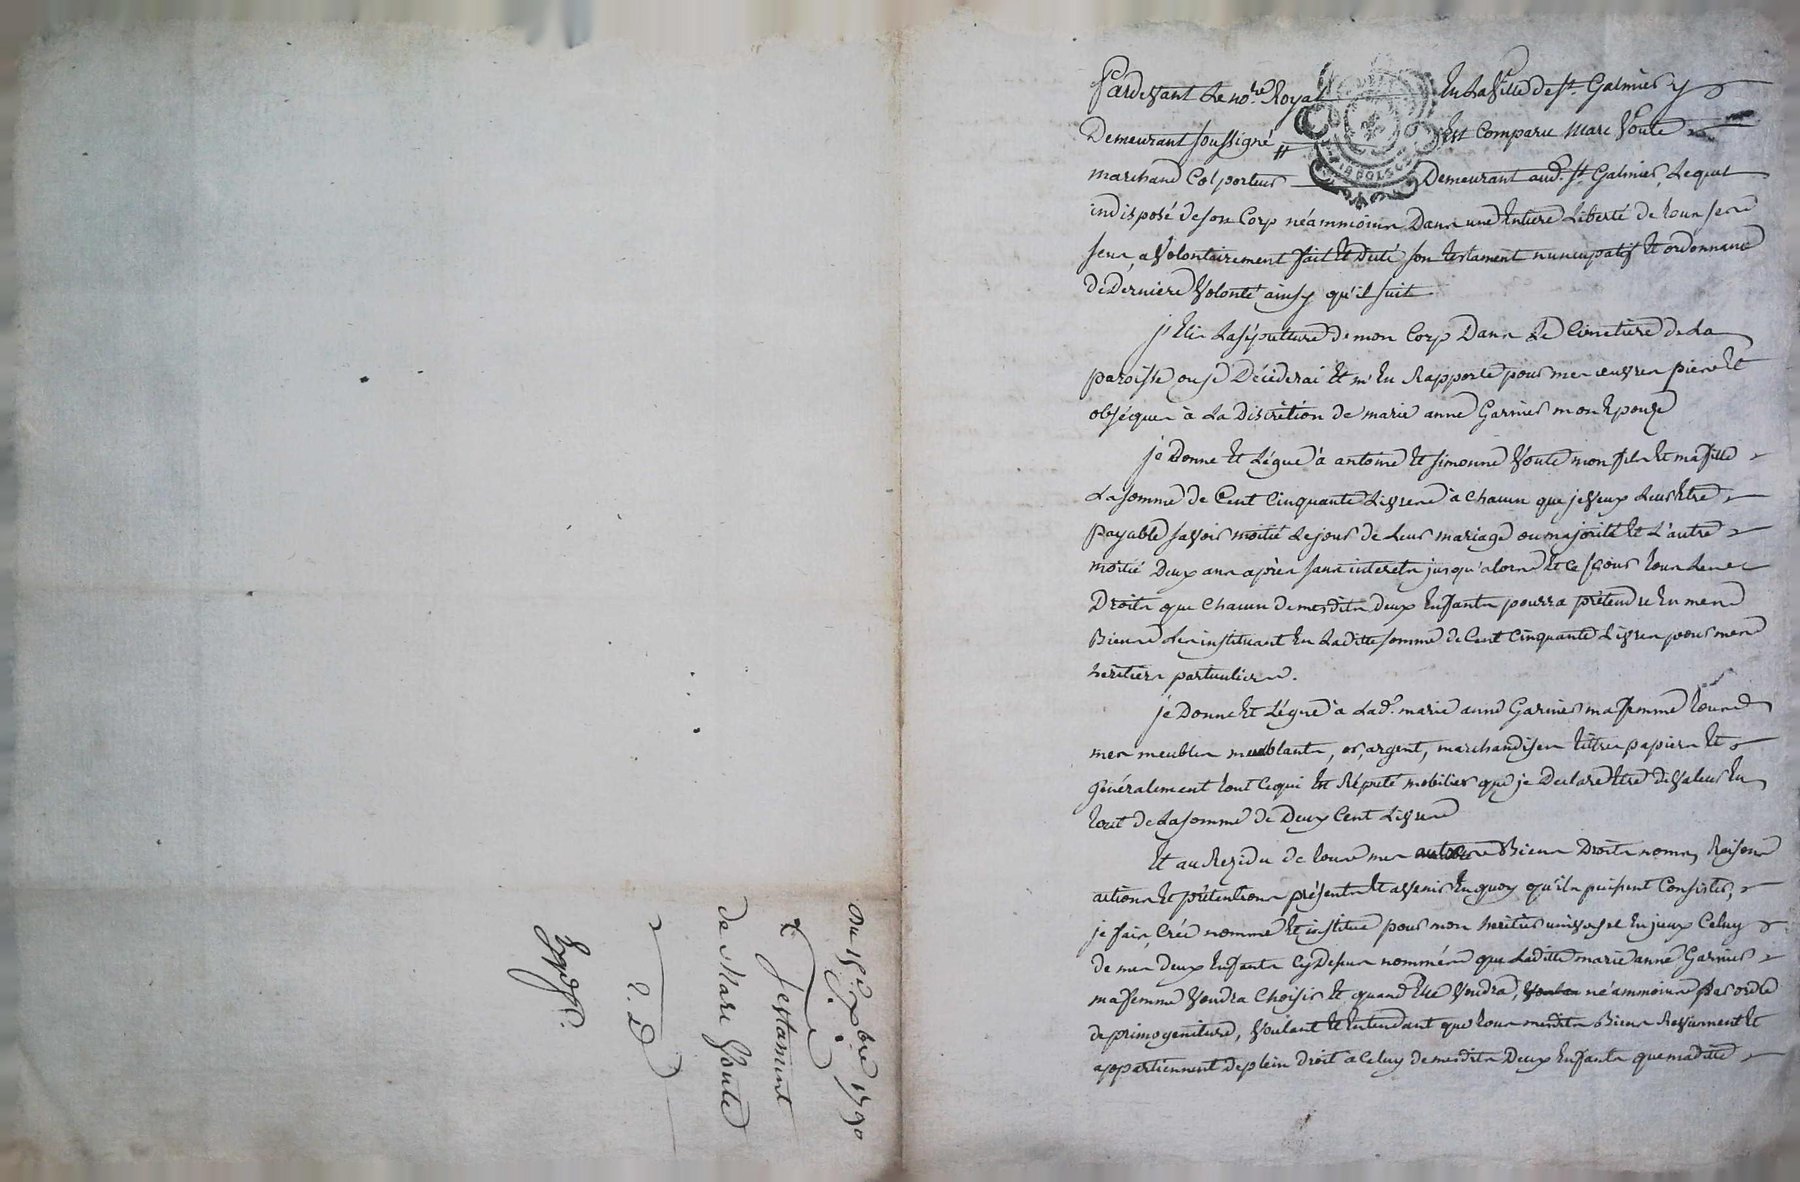 Pardevant le no.re Royal en la Ville de St. Galmier y
Demeurant soussigné est Comparu Marc Voute
marchand Colporteur Demeurant aud. St Galmier, Lequel
indisposé de son Corp néammoins Dans une Entiere Liberté de tous ses
sens, a Volontairement fait et Dicté son testament nuncupatif et ordonnance
de Derniere Volonté ainsy qu'il suit
j'Elis la sépulture de mon Corp Dans Le Cimetiere de La
paroisse ou je Décéderai et m'en Rapporte pour mes œuvres pies et
obséques à La Discrétion de marie anne Garnier mon Epouse
je Donne et Légue à antoine et simonne Voute mon fils et ma fille
La somme de Cent Cinquante Livres à chacun que je veux Leur Etre
payable savoir moitié le jour de Leur mariage ou majorité et L'autre
moitié Deux ans après sans interets jusqu'alors et ce pour tous Les
Droits que chacun de mesdits deux Enfants pourra prétendre en mes
Biens Les instituant en Laditte somme de Cent Cinquante Livres pour mes
heritiers particuliers.
je Donne et Légue à Lad. marie anne Garnier ma femme tous
mes meubles meublants, or, argent, marchandises titres papiers et
généralement tout ce qui est Réputé mobilier que je Declare Etre de Valeur en
tout de La somme de Deux Cent Livres
Et au Rezidu de tous mes autres Biens Droits noms, Raisons
actions et prétentions présents et avenir en quoy qu'ils puissent Consister,
je fais Créé nomme et institue pour mon heritier universel en jeux Celuy
de mes deux Enfants Cy Dessus nommés que Laditte marie anne Garnier
ma femme Voudra Choisir et quand Elle Voudra, néammoins par ordre
de primogeniture, Voulant et Entendant que tous mesdits Biens Reviennent et
appartiennent de plein Droit a Celuy de mesdits Deux Enfants que maditte
Du 15e Xbre 1790
Testament
de Marc Voute
E. D
Expéd.